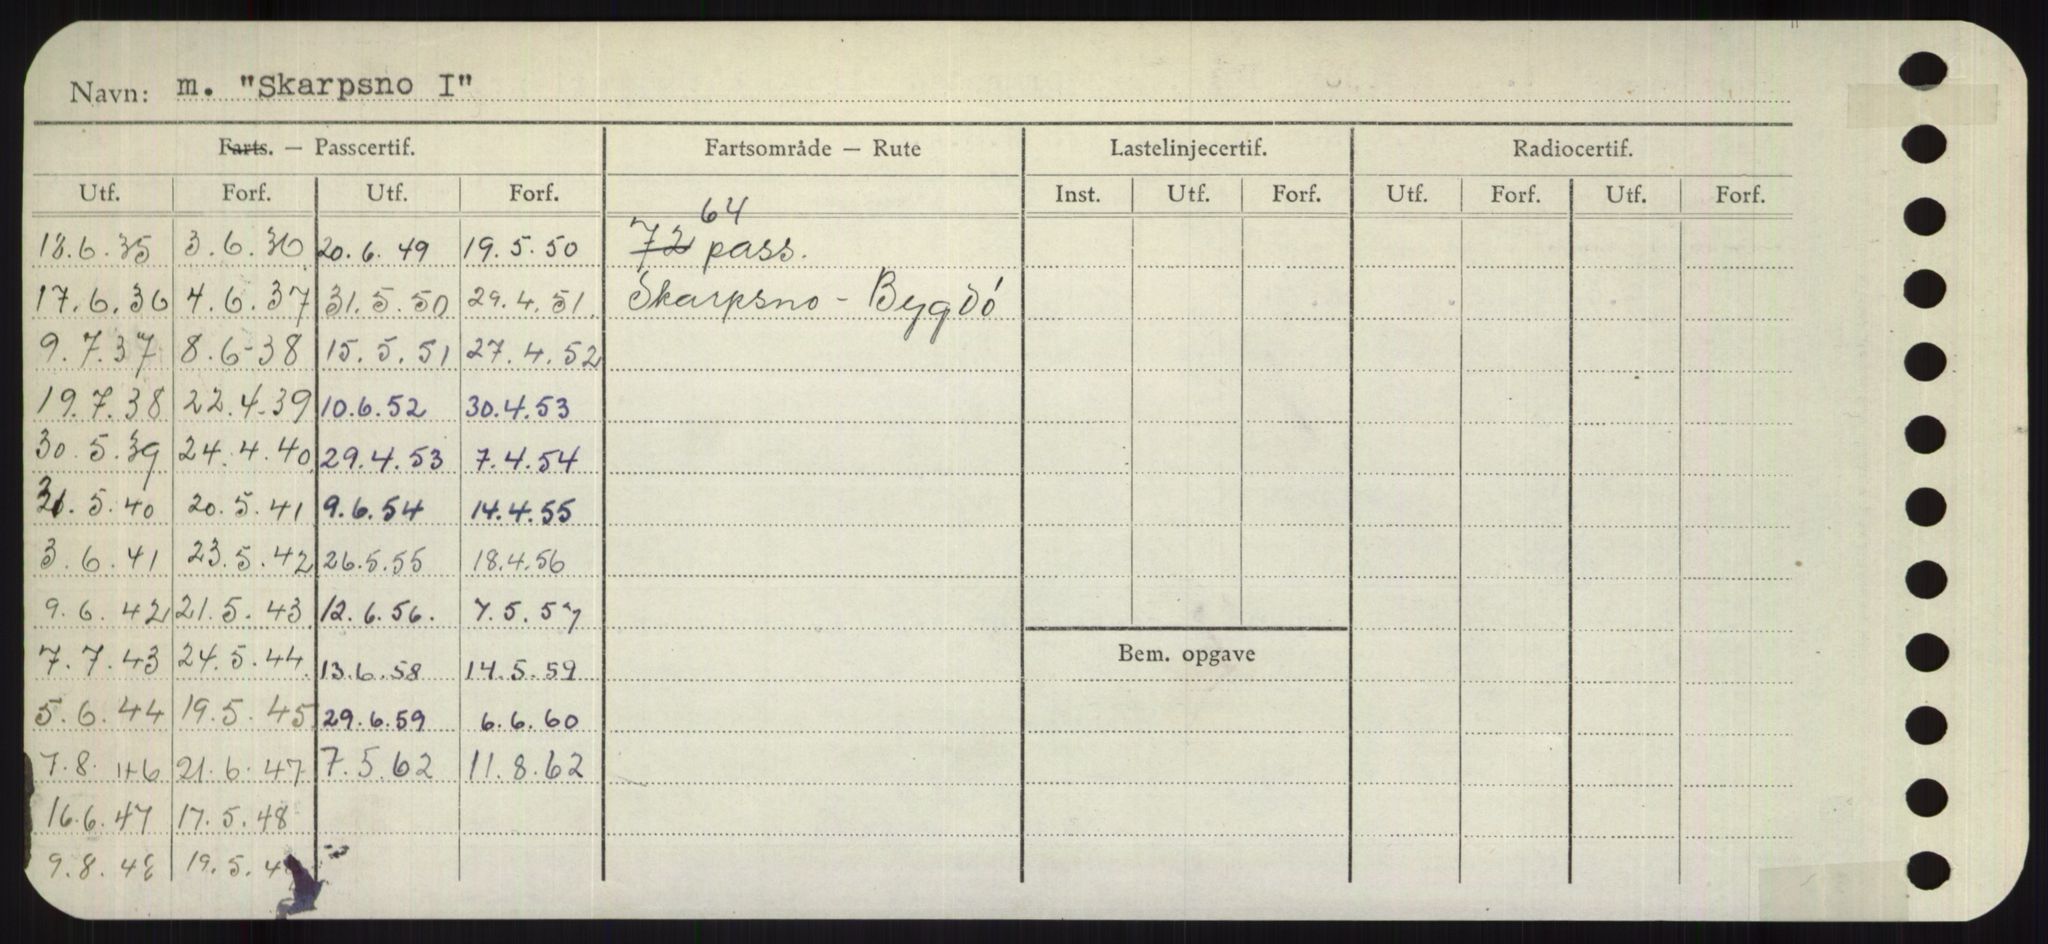 Navn: m. "Skarpsno I"
Farts. — Passcertif. Fartsområde — Rute Lastelinjecertif. Radiocertif.
Utf. Forf. Utf. Forf. Inst. Utf. Forf. Utf. Forf. Utf. Forf.
64
18.6.35 3.6.36 20.6.49 19.5.50 72 pass.
17.6.36 4.6.37 31.5.50 29.4.51. Skarpsno - Bygdó
9.7.37 8.6-38 15.5.51 27.4.52
19.7.38 22.4-39 10.6.52 30.4.53
30.5.39 24.4.40 29.4.53 7.4.54
5.40 20.5.41 9.6.54 14.4.55
3.6.41 23.5.42 26.5.55 18.4.56
9.6.42 21.5.43 12.6.56. 7.5.57
7.7.43 24.5.44 13.6.58 14.5.59
5.6.44 19.5.45 29.6.59 6.6.60
7.8.46 21.6.47 7.5.62 11.8.62
16.6.47 17.5.48
9.8.48 19.5.4
Bem. opgave